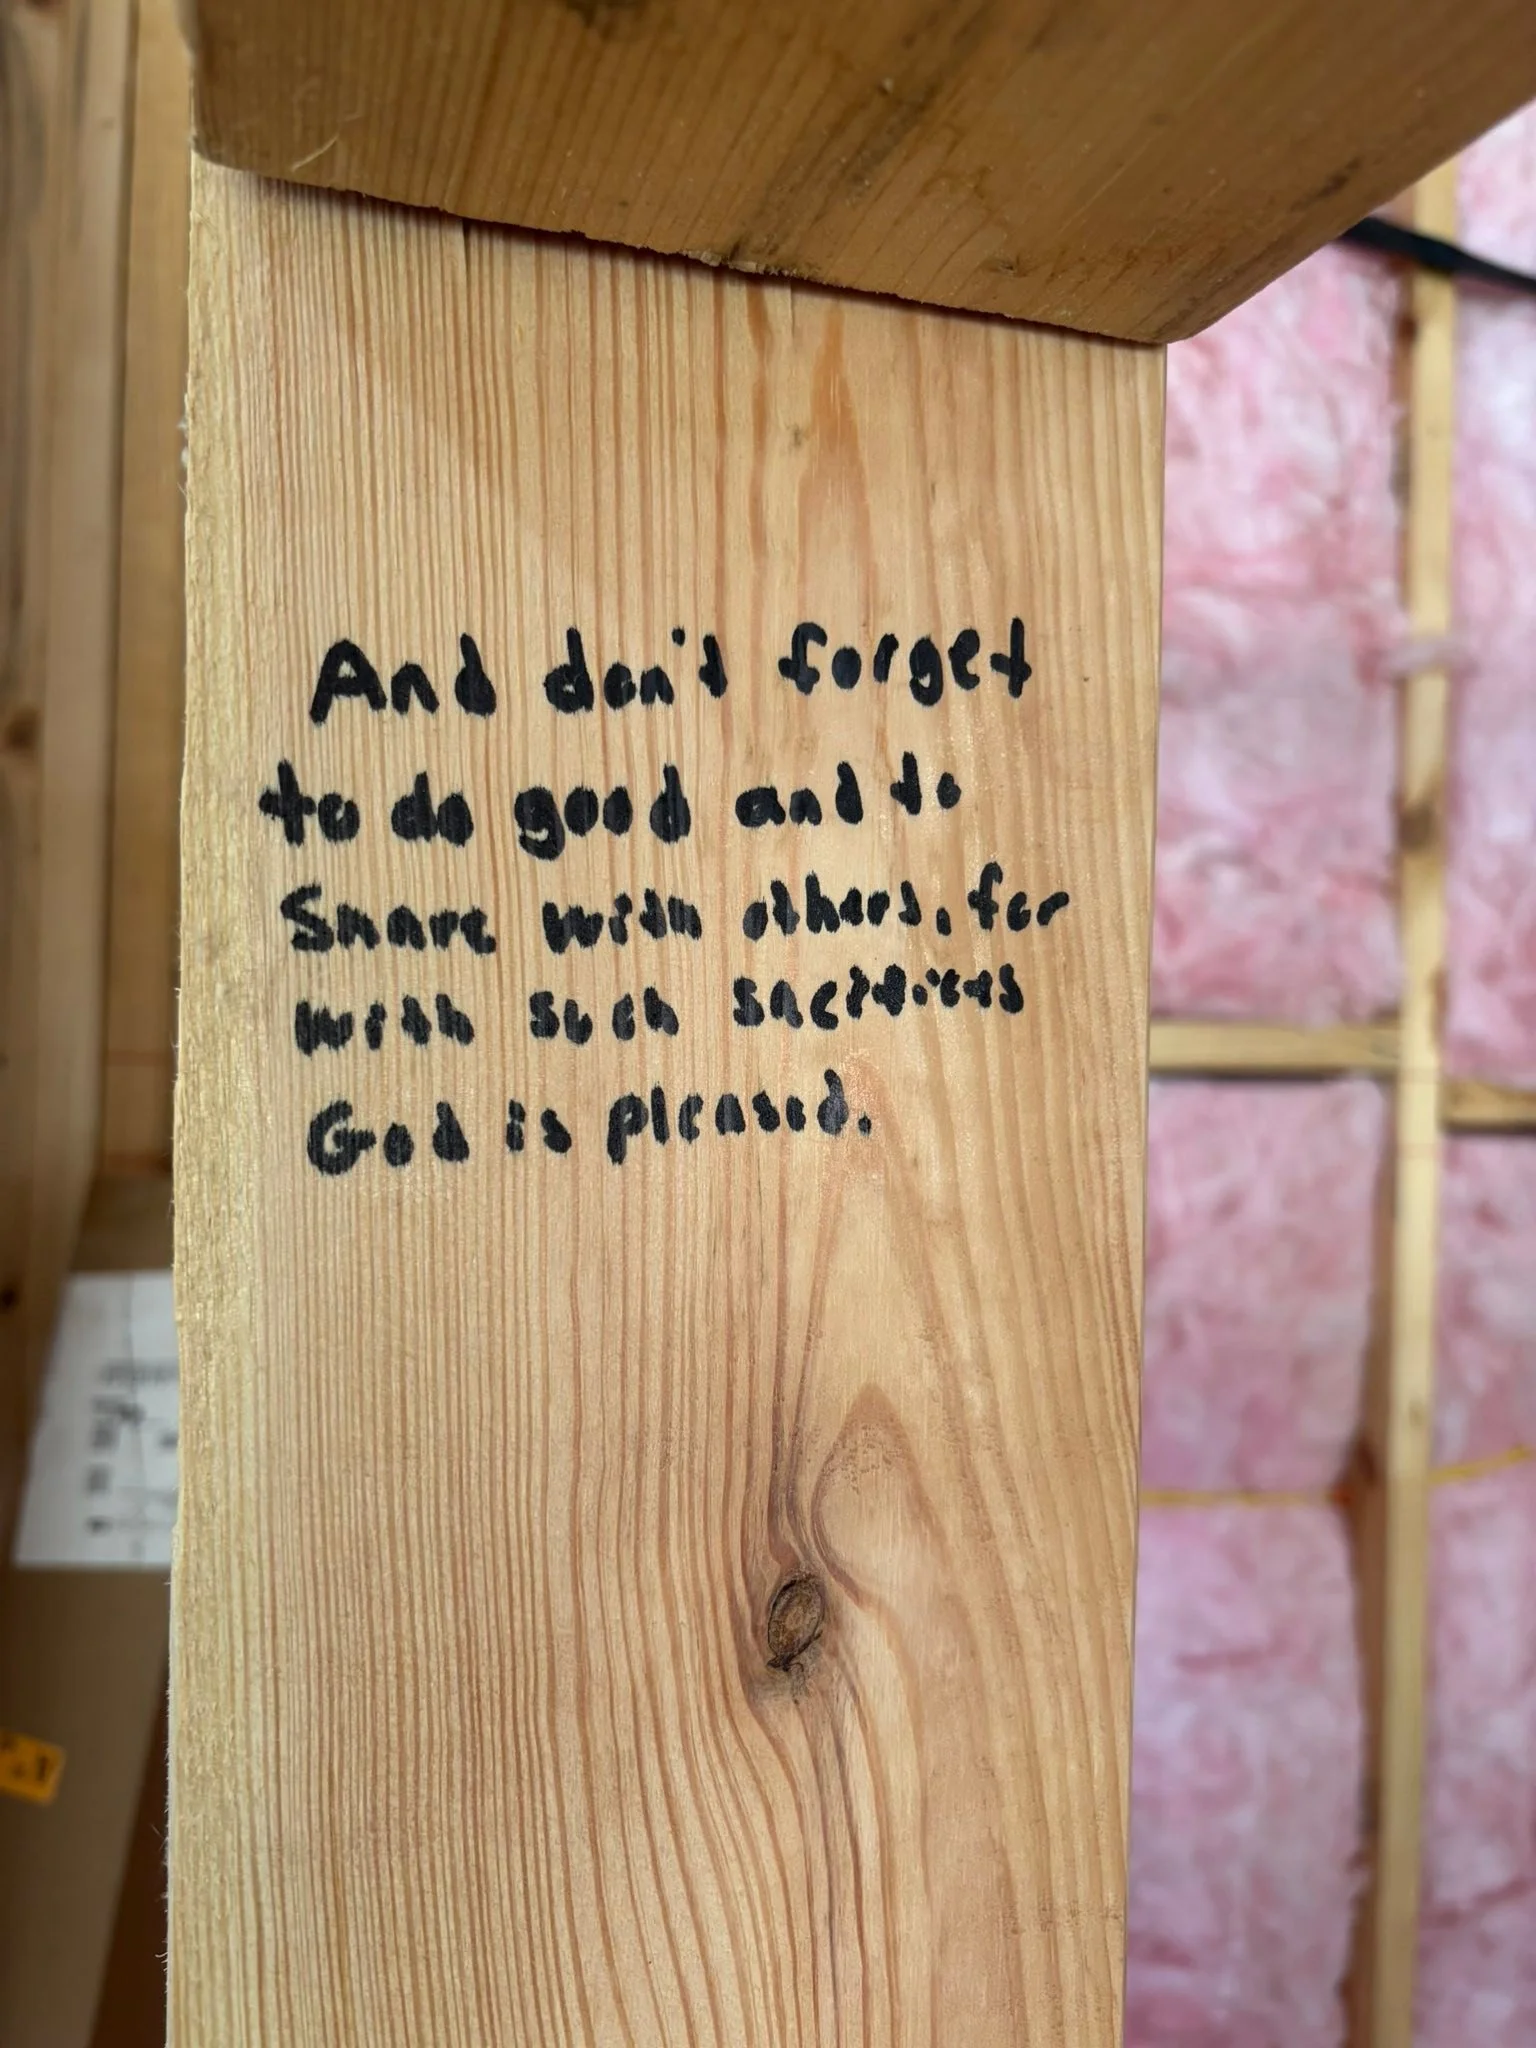 And don't forget
to do good and to
Share with others, for
with such sacrifices
God is pleased.